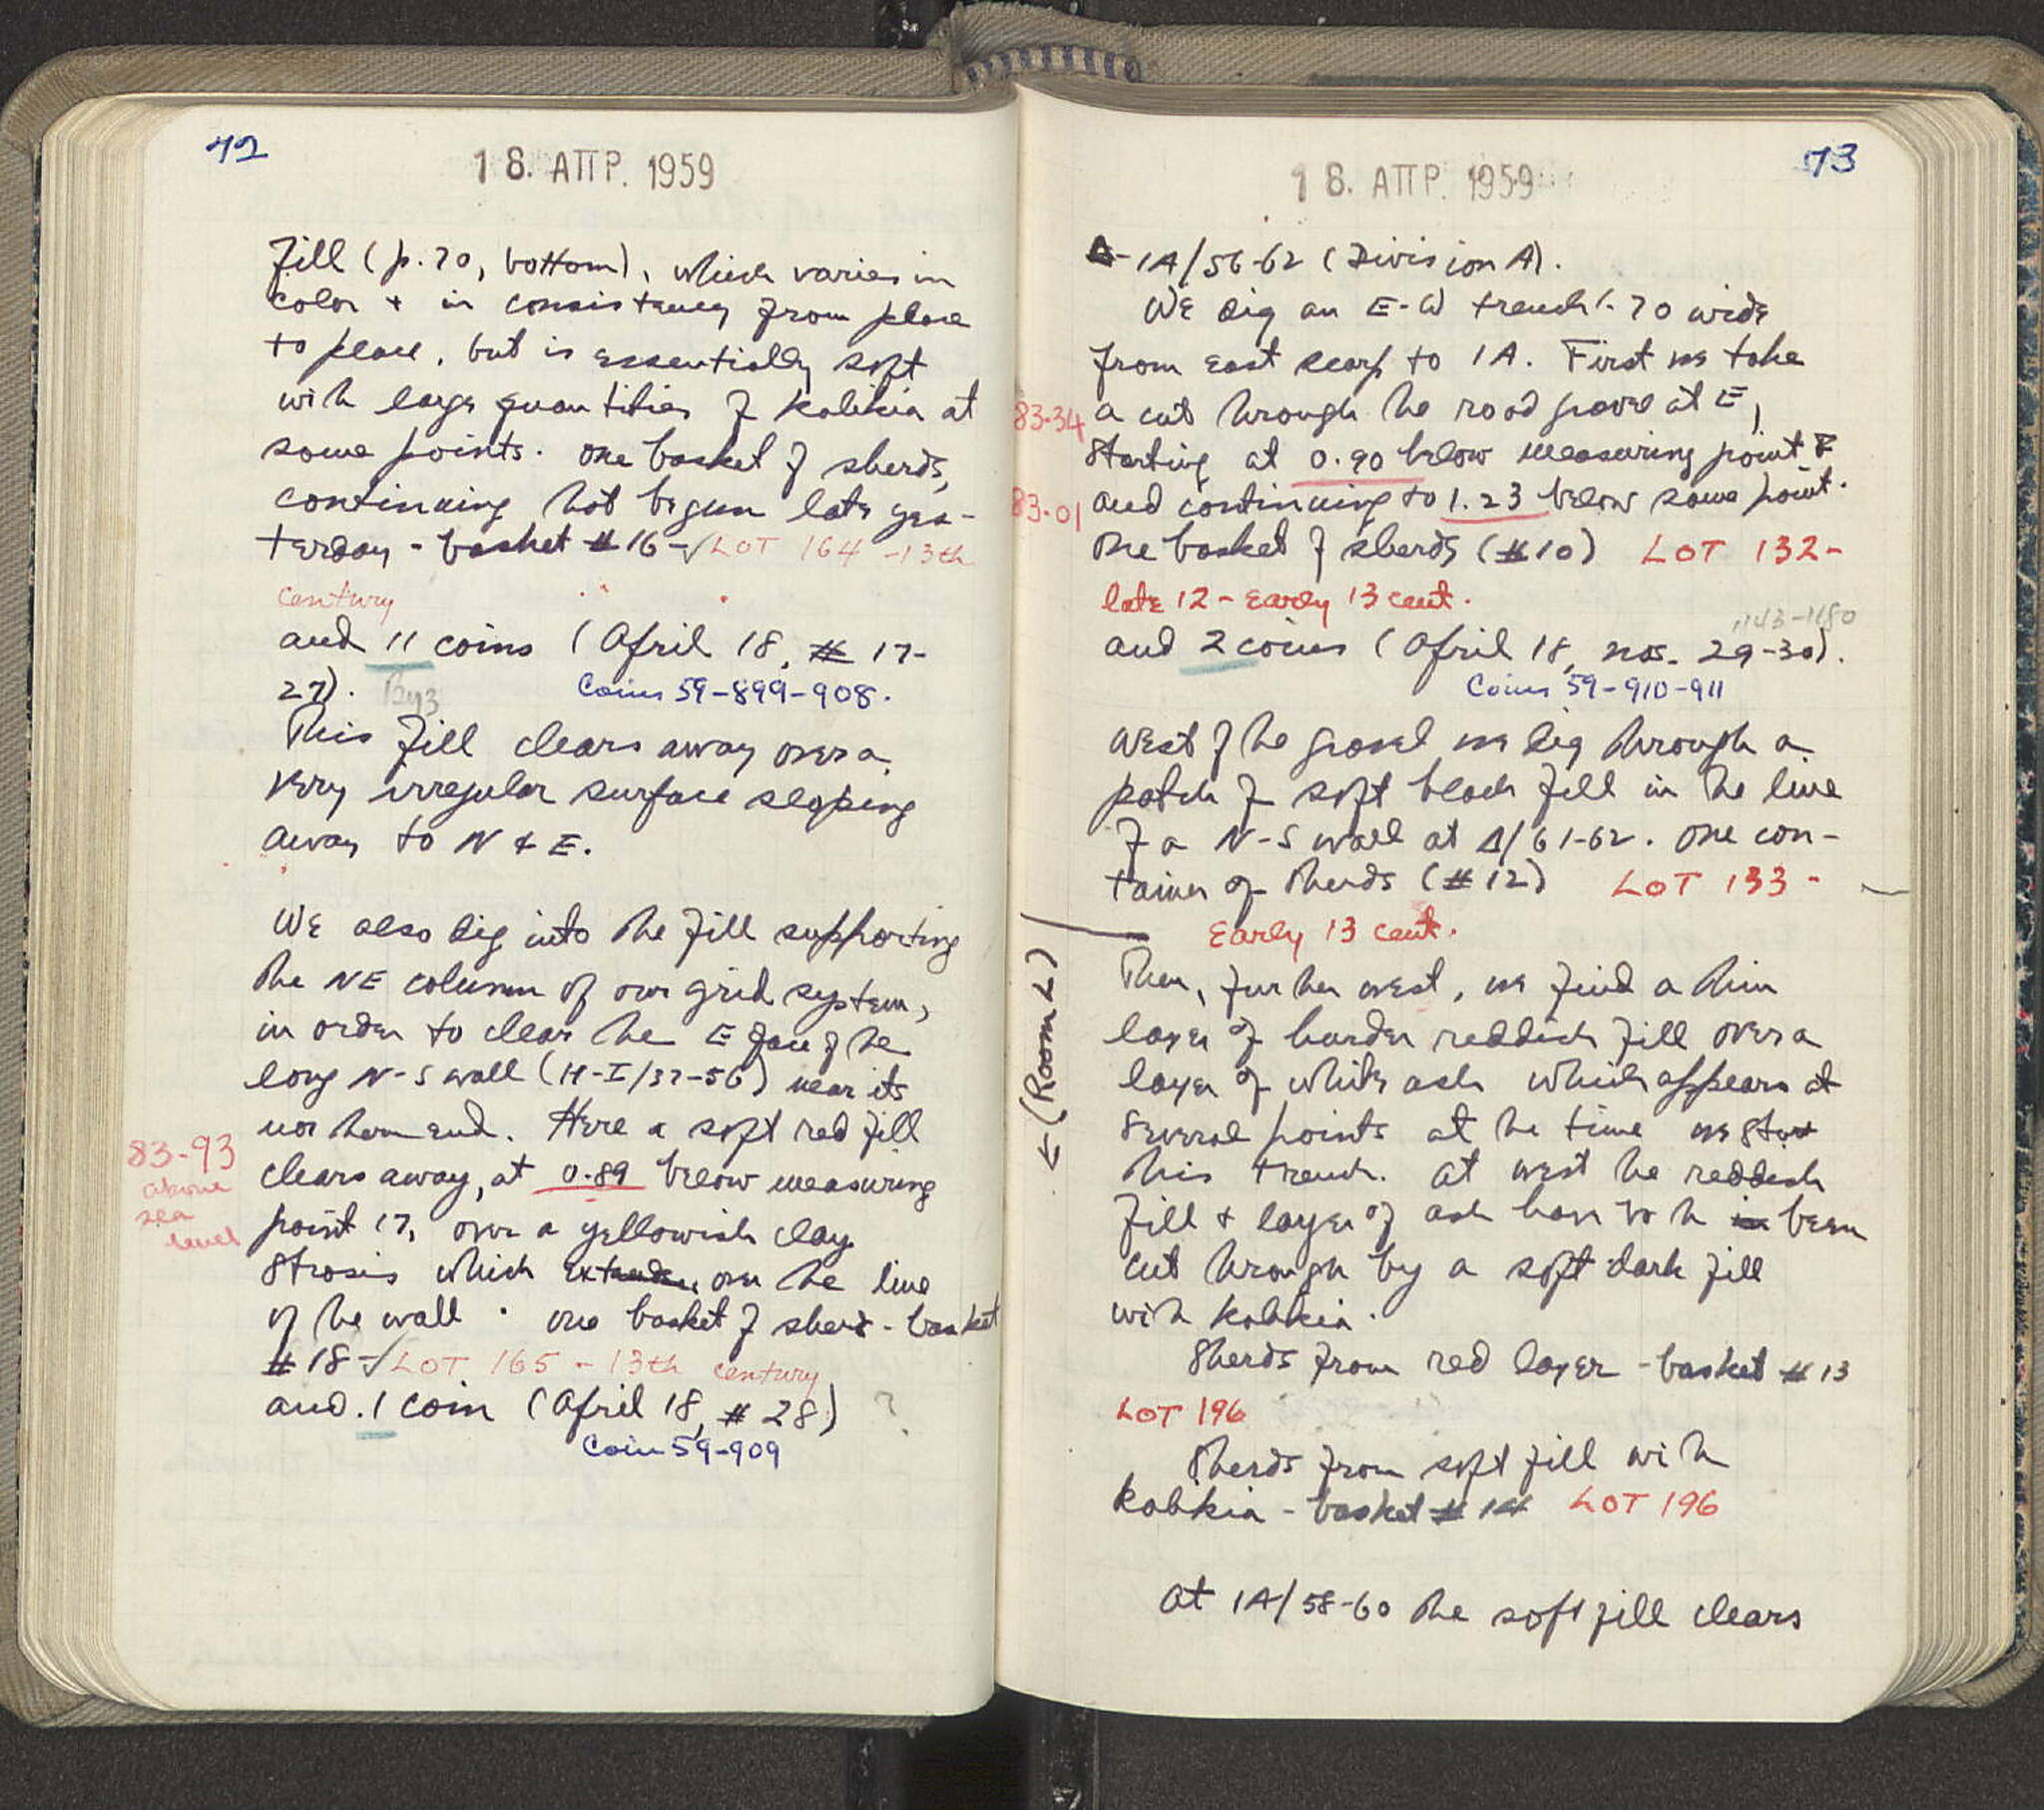 72
18. ΑΠΡ. 1959
fill (p. 70, bottom), which varies in
color + in consistency from place
to place, but is essentially soft
with large quantities of kalikia at
some points. One basket of sherds,
continuing lot begun late yes-
terday - basket # 16 - √ LOT 164 - 13th
century
and 11 coins (April 18, # 17-
27). Byz
Coins 59-899-908.
This fill clears away over a
very irregular surface sloping
away to N & E.
We also dig into the fill supporting
the NE column of our grid system,
in order to clear the E face of the
long N-S wall (H-I/37-56) near its
northern end. Here a soft red fill
83-93
above
sea
level
clears away, at 0.89 below measuring
point 17, over a yellowish clay
strosis which over the line
of the wall. One basket of sherds - basket
# 18 - √ LOT 165 - 13th century
and 1 coin (April 18, # 28) ?
Coin 59-909
73
18. ΑΠΡ. 1959
Δ-1A/56-62 (Division A).
We dig an E-W trench 1.70 wide
from east scarp to 1A. First we take
83-34
a cut through the road gravel at E,
starting at 0.90 below measuring point
83.01
and continuing to 1.23 below same point.
One basket of sherds (#10) LOT 132-
late 12 - Early 13 cent.
1143-1180
and 2 coins (April 18, nos. 29-30).
Coins 59-910-911
West of the gravel we dig through a
patch of soft black fill in the line
of a N-S wall at Δ/61-62. One con-
tainer of sherds (#12) LOT 133 -
Early 13 cent.
(Room 2)
Then, further west, we find a thin
layer of harder reddish fill over a
layer of white ash which appears at
several points at the time we start
this trench. At west the reddish
fill + layer of ash have both been
cut through by a soft dark fill
with kalikia.
Sherds from red layer - basket # 13
LOT 196
Sherds from soft fill with
kalikia - basket # 14 LOT 196
At 1A/58-60 the soft fill clears